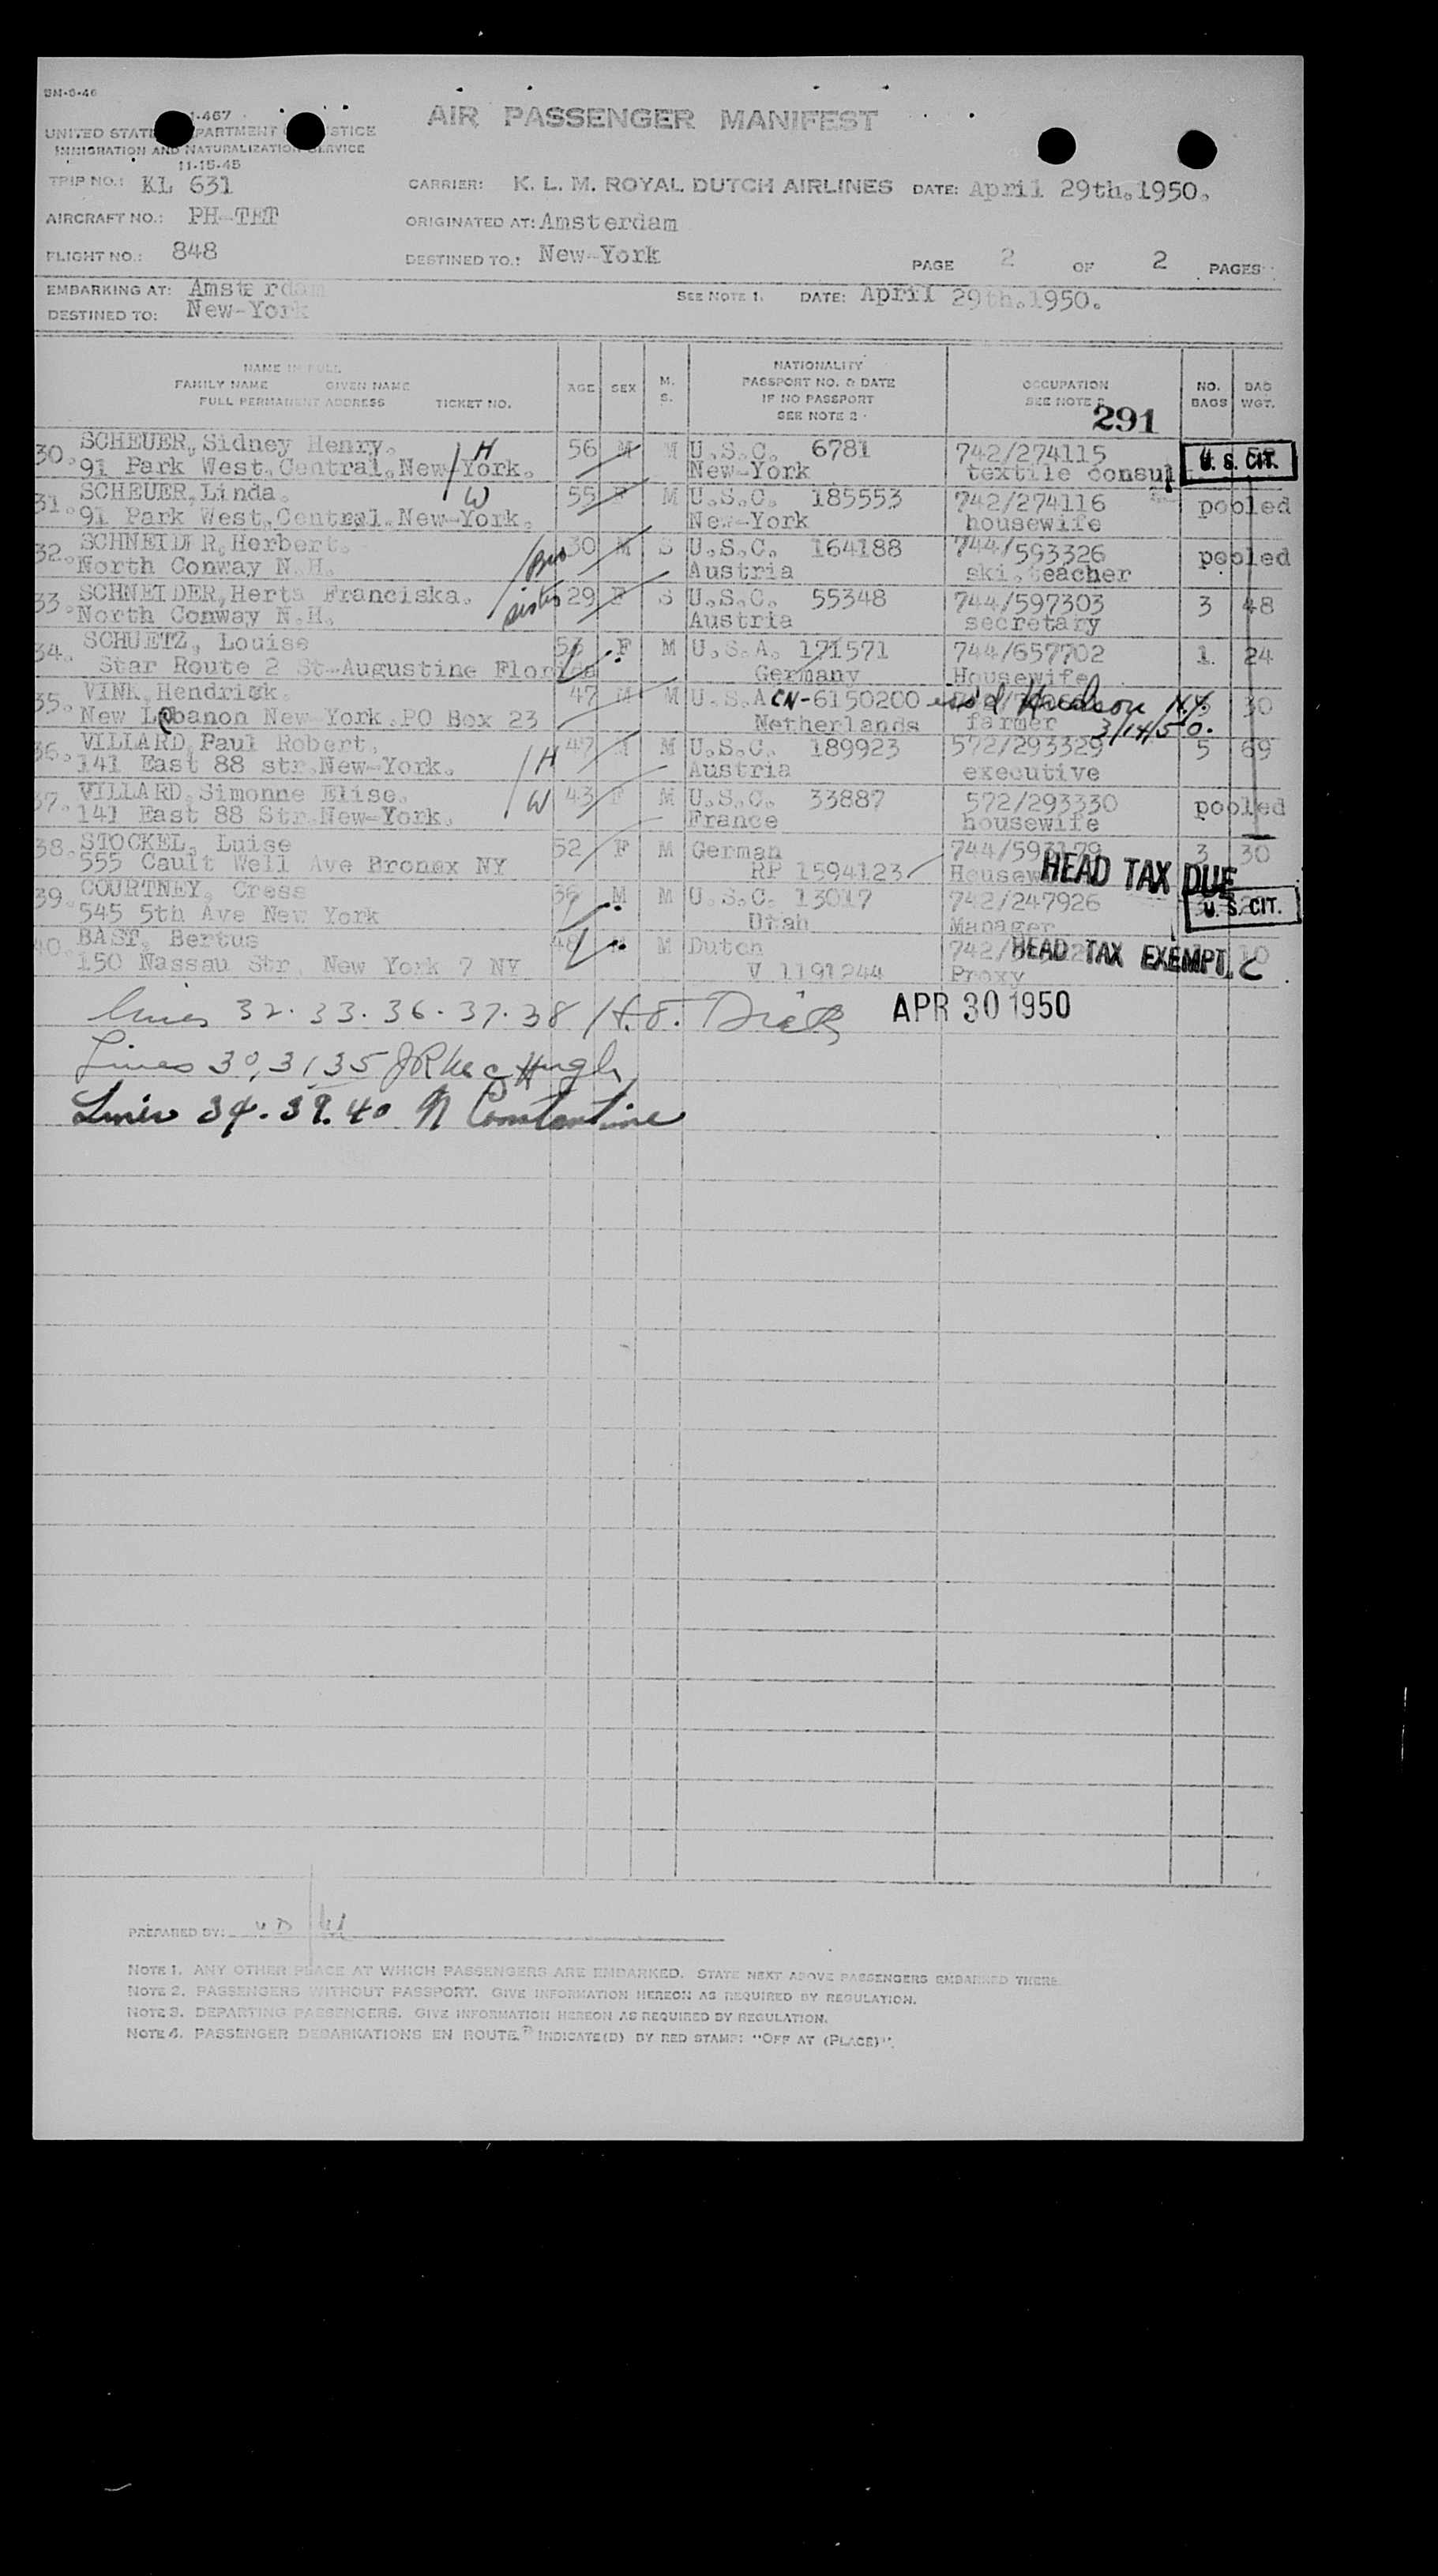 BM-8-46
I-467
UNITED STATES DEPARTMENT OF JUSTICE
IMMIGRATION AND NATURALIZATION SERVICE
11-15-45
AIR PASSENGER MANIFEST
TRIP NO.: KL 631 CARRIER: K. L. M. ROYAL DUTCH AIRLINES DATE: April 29th.1950.
AIRCRAFT NO.: PH-TET ORIGINATED AT: Amsterdam
FLIGHT NO.: 848 DESTINED TO.: New-York PAGE 2 OF 2 PAGES
EMBARKING AT: Amsterdam SEE NOTE 1. DATE: April 29th.1950.
DESTINED TO: New-York
NAME IN FULL
FAMILY NAME GIVEN NAME
FULL PERMANENT ADDRESS TICKET NO.
AGE SEX M. S.
NATIONALITY
PASSPORT NO. & DATE
IF NO PASSPORT
SEE NOTE 2
OCCUPATION
SEE NOTE 2
NO. BAGS
BAG WGT.
291
30. SCHEUER, Sidney Henry. H 56 M M U.S.C. 6781 742/274115 U. S. CIT.
91 Park West.Central.New-York. New-York textile consul
31. SCHEUER, Linda. W 55 F M U.S.C. 185553 742/274116 pooled
91 Park West.Central.New-York. New-York housewife
32. SCHNEIDER, Herbert. Bro 30 M S U.S.C. 164188 744/593326 pooled
North Conway N.H. Austria ski.teacher
33. SCHNEIDER, Herta Franciska. sister 29 F S U.S.C. 55348 744/597303 3 48
North Conway N.H. Austria secretary
34. SCHUETZ, Louise 53 F M U.S.A. 171571 744/657702 1 24
Star Route 2 St-Augustine Florida Germany Housewife
35. VINK, Hendrick. 47 M M U.S.A CN-6150200 iss'd Hudson N.Y. 30
New Lebanon New York.PO Box 23 Netherlands farmer 3/14/50.
36. VILLARD, Paul Robert. H 47 M M U.S.C. 189923 572/293329 5 69
141 East 88 str.New-York. Austria executive
37. VILLARD, Simonne Elise. W 43 F M U.S.C. 33887 572/293330 pooled
141 East 88 Str.New-York. France housewife
38. STOCKEL, Luise 52 F M German 744/593179 3 30
555 Cault Well Ave Bronex NY RP 1594123 HEAD TAX DUE
39. COURTNEY, Cress 36 M M U.S.C. 13017 742/247926 U. S. CIT.
545 5th Ave New York Utah Manager
40. BAST, Bertus 48 M Dutch HEAD TAX EXEMPT. C 10
150 Nassau Str. New York 7 NY V 1191244 Proxy
lines 32. 33. 36. 37. 38 APR 30 1950
Lines 30, 31 35
Lines 34. 39. 40 N Constantine
PREPARED BY:
NOTE 1. ANY OTHER PLACE AT WHICH PASSENGERS ARE EMBARKED. STATE NEXT ABOVE PASSENGERS EMBARKED THERE.
NOTE 2. PASSENGERS WITHOUT PASSPORT. GIVE INFORMATION HEREON AS REQUIRED BY REGULATION.
NOTE 3. DEPARTING PASSENGERS. GIVE INFORMATION HEREON AS REQUIRED BY REGULATION.
NOTE 4. PASSENGER DEBARKATIONS EN ROUTE. INDICATE(D) BY RED STAMP: "OFF AT (PLACE)".